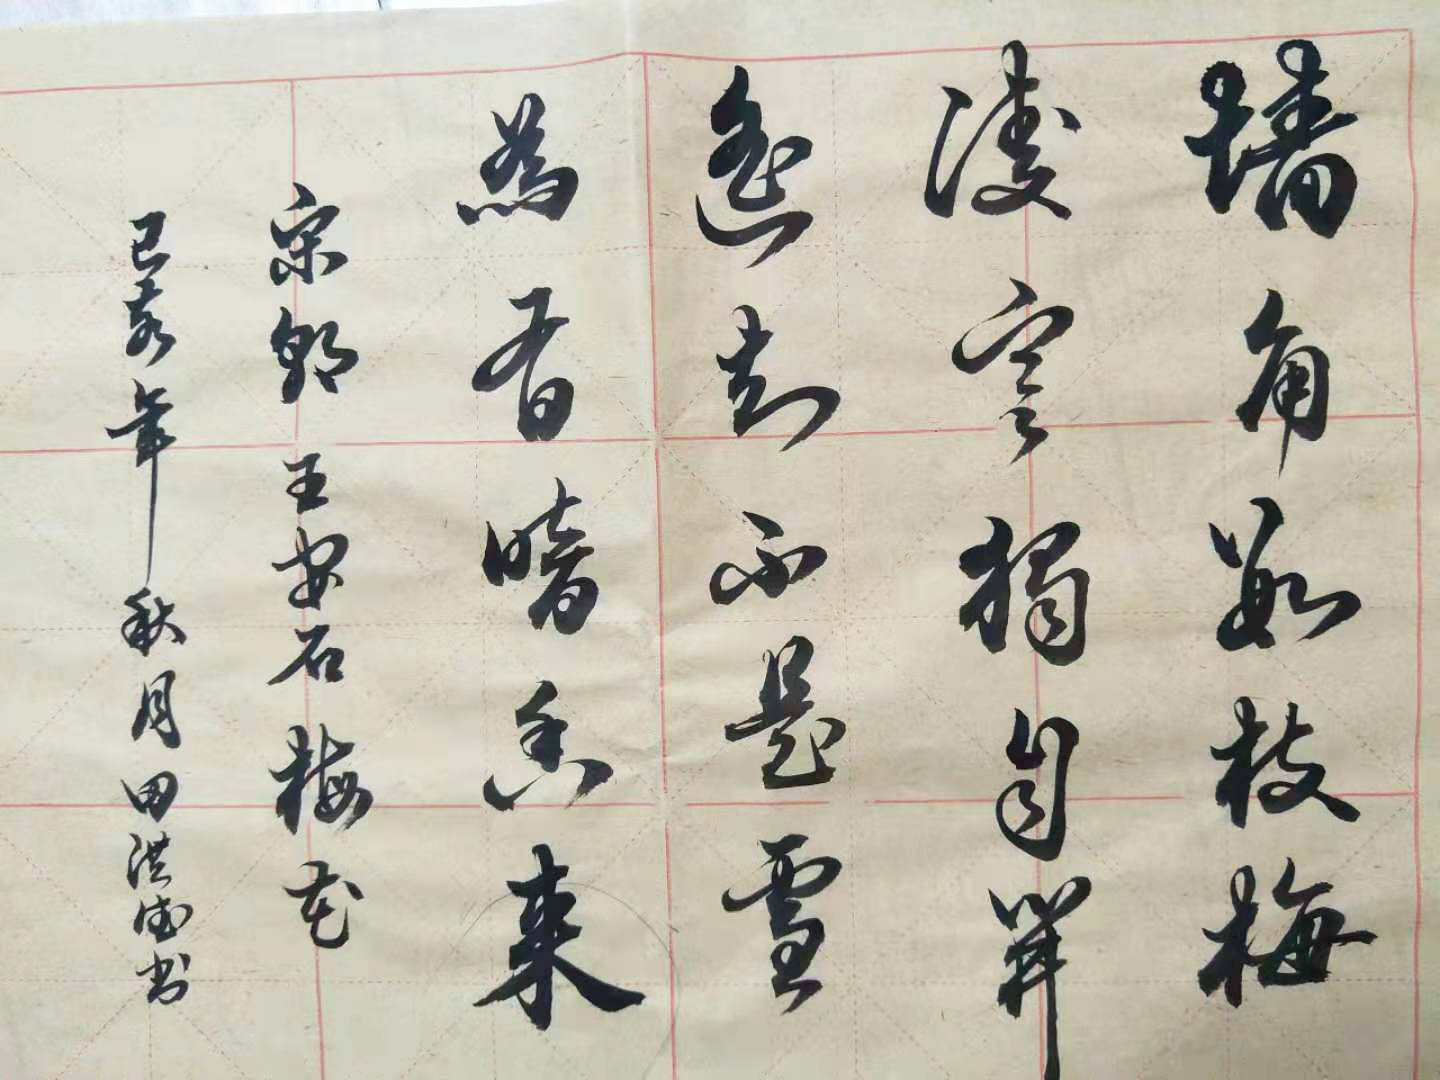 墙角数枝梅
凌寒独自開
遥知不是雪
為有暗香来
宋郎王安石梅花
己亥年秋月田洪涛书